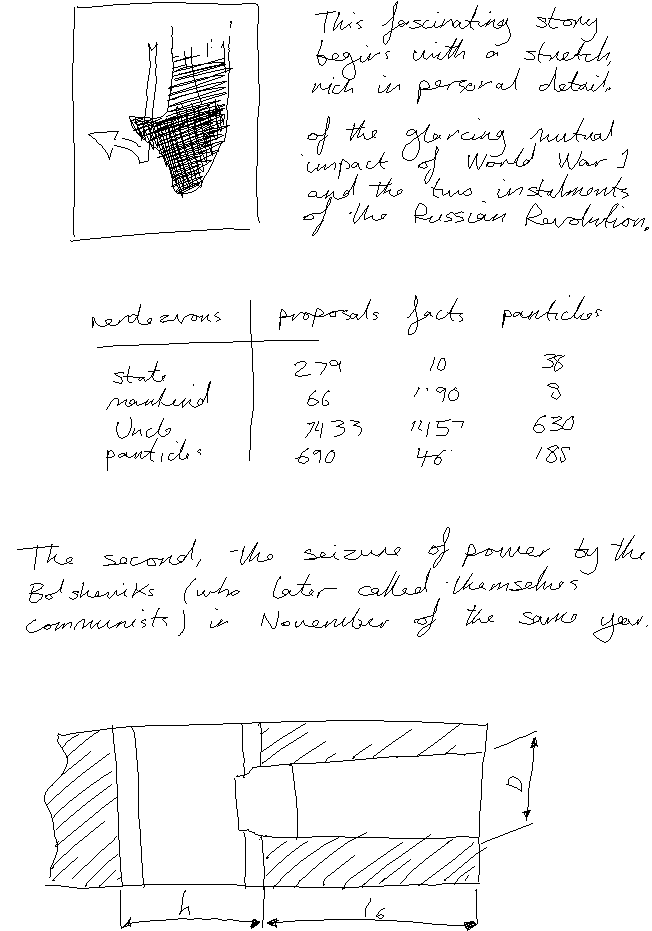 This fascinating story
begins with a stretch,
rich in personal detail.
of the glancing mutual
impact of World War 1
and the two instalments
of the Russian Revolution.
rendezvous proposals facts particles
state 279 10 38
mankind 66 1190 8
Uncle 7433 11157 630
particles 690 46 185
The second, the seizure of power by the
Bolsheviks (who later called themselves
communists) in November of the same year.
D
h l6